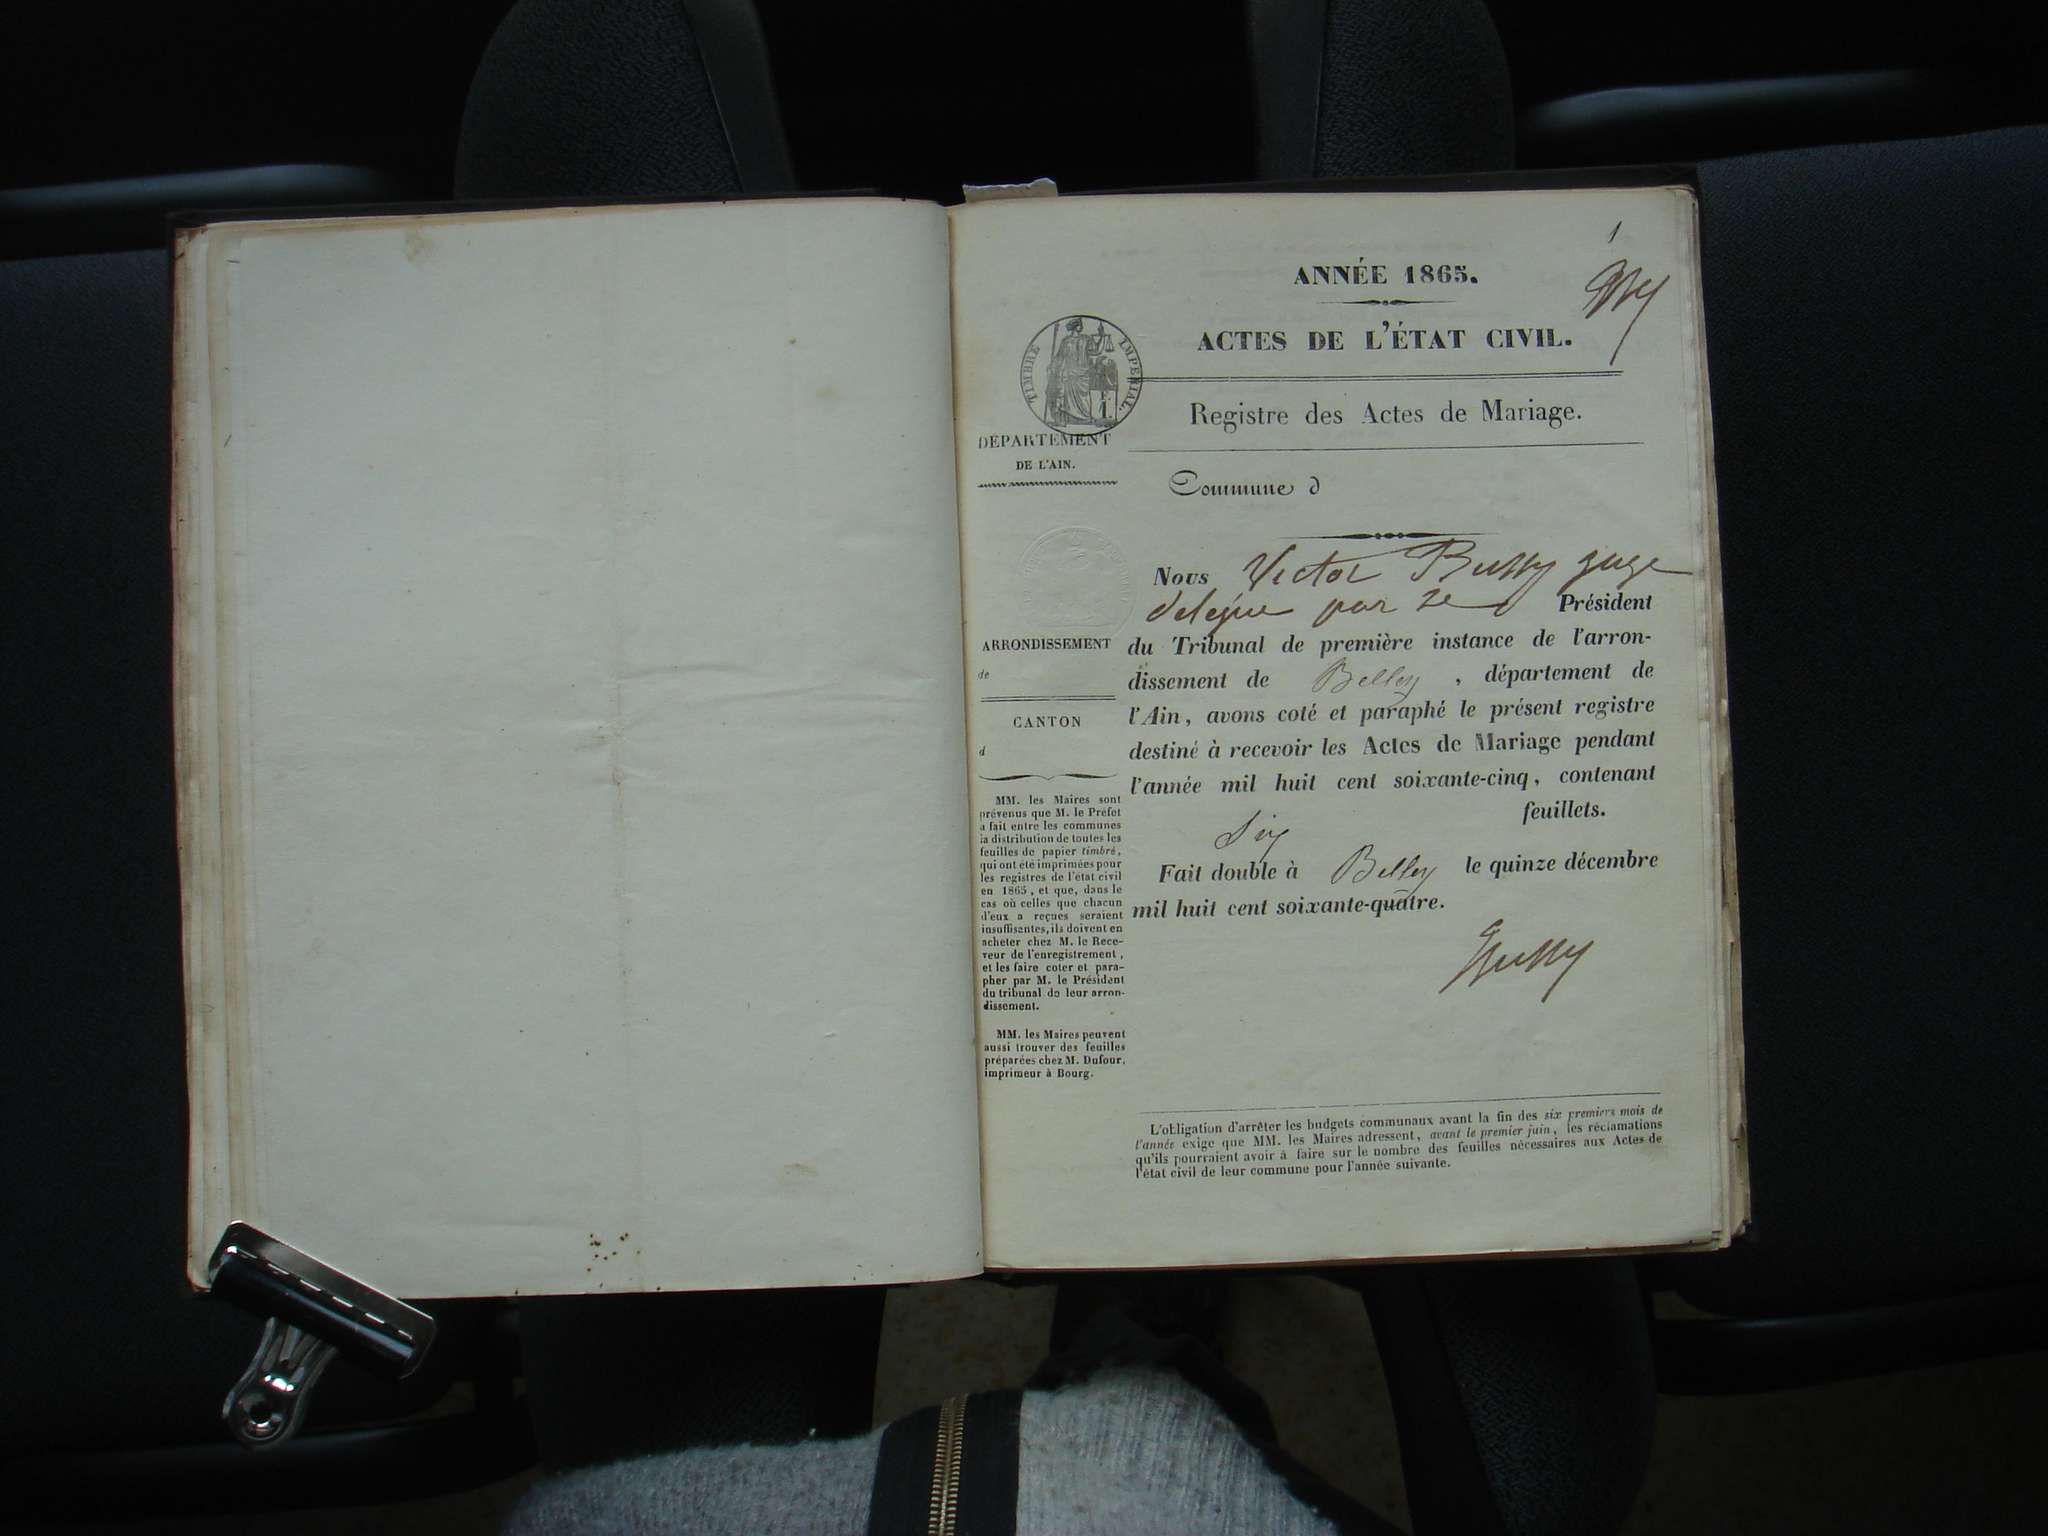 1
ANNÉE 1865.
ACTES DE L'ÉTAT CIVIL.
TIMBRE IMPERIAL.
Registre des Actes de Mariage.
DÉPARTEMENT
DE L'AIN.
Commune d
Nous Victor Bussy juge
délégué par le Président
ARRONDISSEMENT
de
du Tribunal de première instance de l'arron-
dissement de Belley, département de
l'Ain, avons coté et paraphé le présent registre
destiné à recevoir les Actes de Mariage pendant
l'année mil huit cent soixante-cinq, contenant
six feuillets.
Fait double à Belley le quinze décembre
mil huit cent soixante-quatre.
Bussy
CANTON
d
MM. les Maires sont
prévenus que M. le Préfet
a fait entre les communes
la distribution de toutes les
feuilles de papier timbré,
qui ont été imprimées pour
les registres de l'état civil
en 1865, et que, dans le
cas où celles que chacun
d'eux a reçues seraient
insuffisantes, ils doivent en
acheter chez M. le Rece-
veur de l'enregistrement,
et les faire coter et para-
pher par M. le Président
du tribunal de leur arron-
dissement.
MM. les Maires peuvent
aussi trouver des feuilles
préparées chez M. Dufour,
imprimeur à Bourg.
L'obligation d'arrêter les budgets communaux avant la fin des six premiers mois de
l'année exige que MM. les Maires adressent, avant le premier juin, les réclamations
qu'ils pourraient avoir à faire sur le nombre des feuilles nécessaires aux Actes de
l'état civil de leur commune pour l'année suivante.